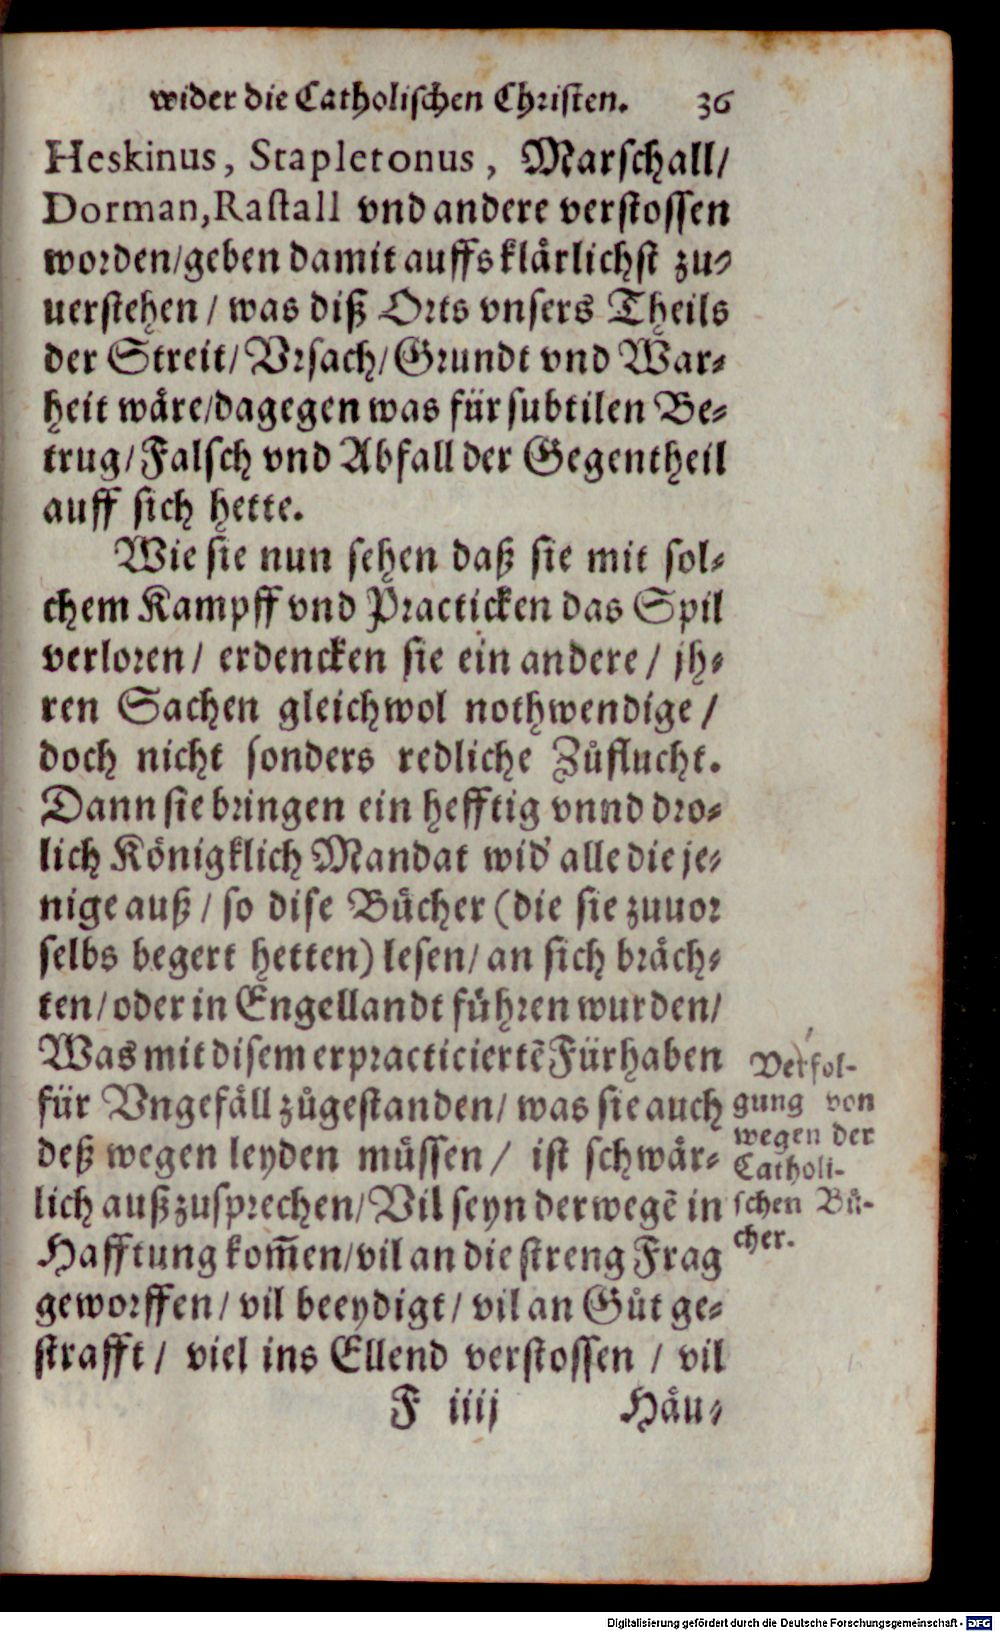 wider die Catholischen Christen. 36
Heskinus, Stapletonus, Marschall/
Dorman, Rastall vnd andere verstossen
worden/geben damit auffs klårlichst zu-
uerstehen / was diß Orts vnsers Theils
der Streit/ Vrsach/ Grundt vnd War-
heit wåre/dagegen was für subtilen Be-
trug/ Falsch vnd Abfall der Gegentheil
auff sich hette.
Wie sie nun sehen daß sie mit sol-
chem Kampff vnd Practicken das Spil
verloren/ erdencken sie ein andere / jh-
ren Sachen gleichwol nothwendige /
doch nicht sonders redliche Zůflucht.
Dann sie bringen ein hefftig vnnd dro-
lich Königklich Mandat wid' alle die je-
nige auß / so dise Bücher (die sie zuuor
selbs begert hetten) lesen/ an sich bråch-
ten/ oder in Engellandt führen wurden/
Was mit disem erpracticiertẽ Fürhaben
für Vngefåll zůgestanden/ was sie auch
deß wegen leyden müssen / ist schwår-
lich außzusprechen/ Vil seyn derwegẽ in
Hafftung kom̃en/ vil an die streng Frag
geworffen/ vil beeydigt/ vil an Gůt ge-
strafft / viel ins Ellend verstossen / vil
F iiij Håu-
Verfol-
gung von
wegen der
Catholi-
schen Bü-
cher.
Digitalisierung gefördert durch die Deutsche Forschungsgemeinschaft - DFG